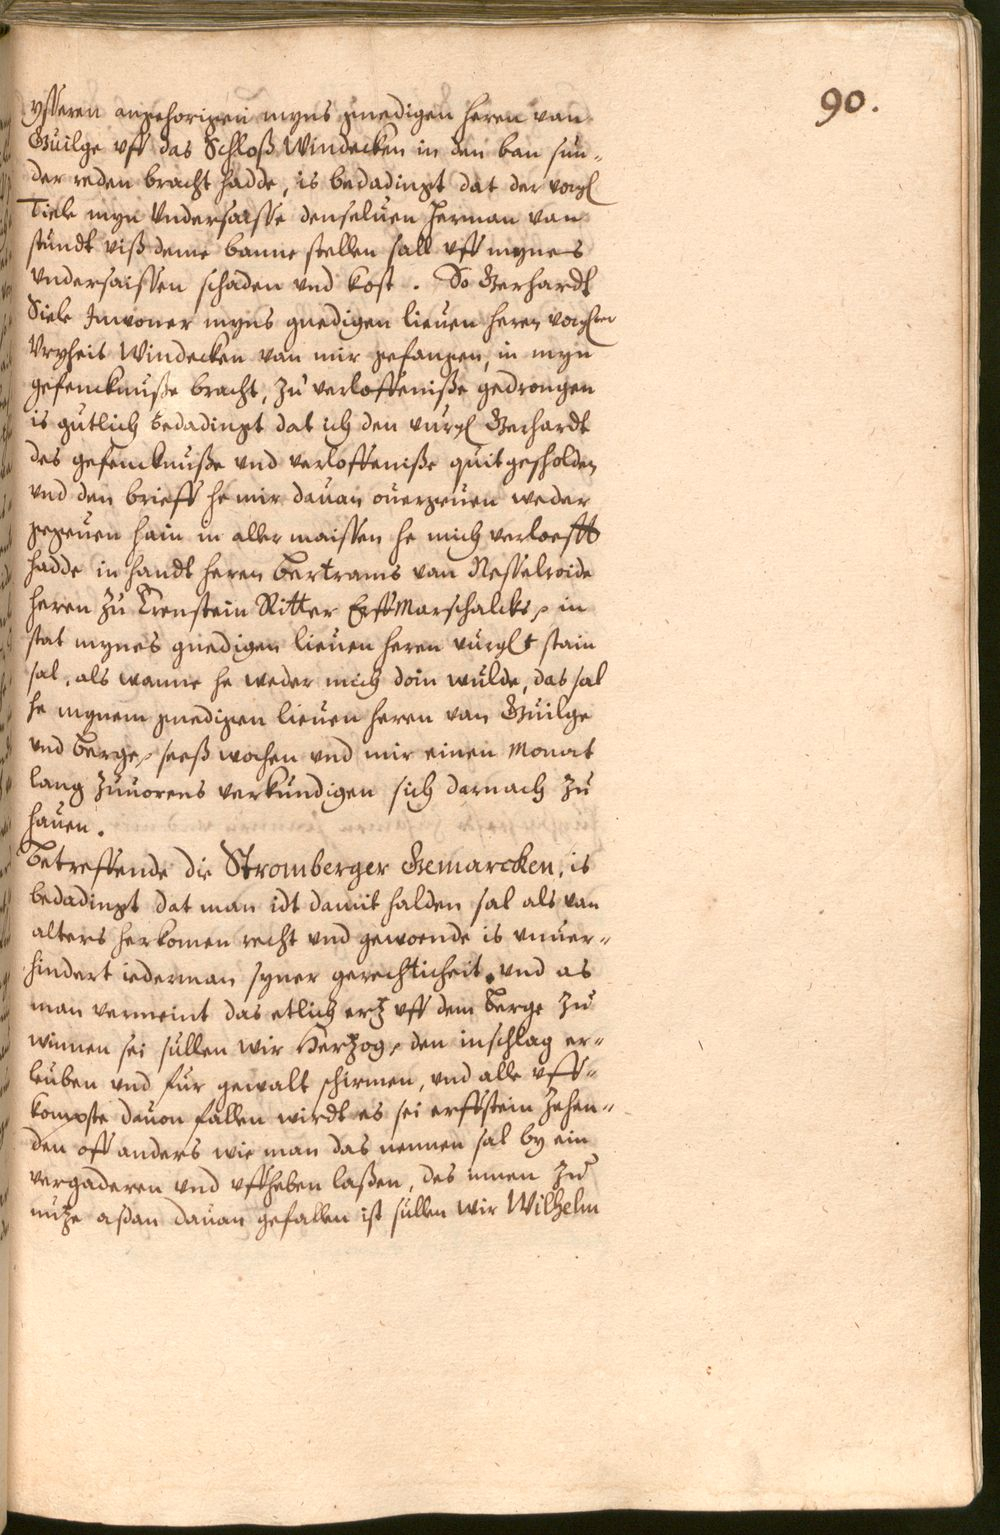 90.
ysseren angehorigen myns gnedigen heren van
Guilge vff das Schloß Windecken in den ban sun-
der reden bracht hadde, is bedadingt dat der vorgl
Tiele myn vndersaisse denseluen Herman van
stundt viß deme banne stellen sall vff mynes
vndersaissen schaden vnd kost. So Gerhardt
Siele Inwoner myns gnedigen lieuen heren
Vryheit Windecken van mir gefangen, in myn
gefencknuße bracht, zu verlofteniße gedrongen
is gutlich bedadingt dat ich den vurgl Gerhardt
des gefencknuße vnd verlofteniße quitgescholden
vnd den brieff he mir dauan ouergeuen weder
gegeuen hain in aller maissen he mich verloefft
hadde in handt heren Bertrams van Nesselroide
heren zu Erenstein Ritter Erffmarschalcks, in
stat mynes gnedigen lieuen heren vurglt stain
sal, als wanne he weder mich doin wulde, das sal
he mynem gnedigen lieuen heren van Guilge
vnd Berge, seeß wochen vnd mir einen Monat
lang zuuorens verkundigen sich darnach zu
hauen.
Betreffende die Stromberger Gemarcken, is
bedadingt dat man idt damit halden sal als van
alters herkomen recht vnd gewoende is vnuer-
hindert iederman syner gerechticheit, vnd as
man vermeint das etlich ertz vff dem Berge zu
winnen sei sullen wir Hertzog, den inschlag er-
leuben vnd fur gewalt schirmen, vnd alle vff-
kompste dauon fallen wirdt es sei erffstein zehen-
den off anders wie man das nennen sal by ein
vergaderen vnd vffheben laßen, des innen zu
nutze aßdan dauan gefallen ist sullen wir Wilhelm